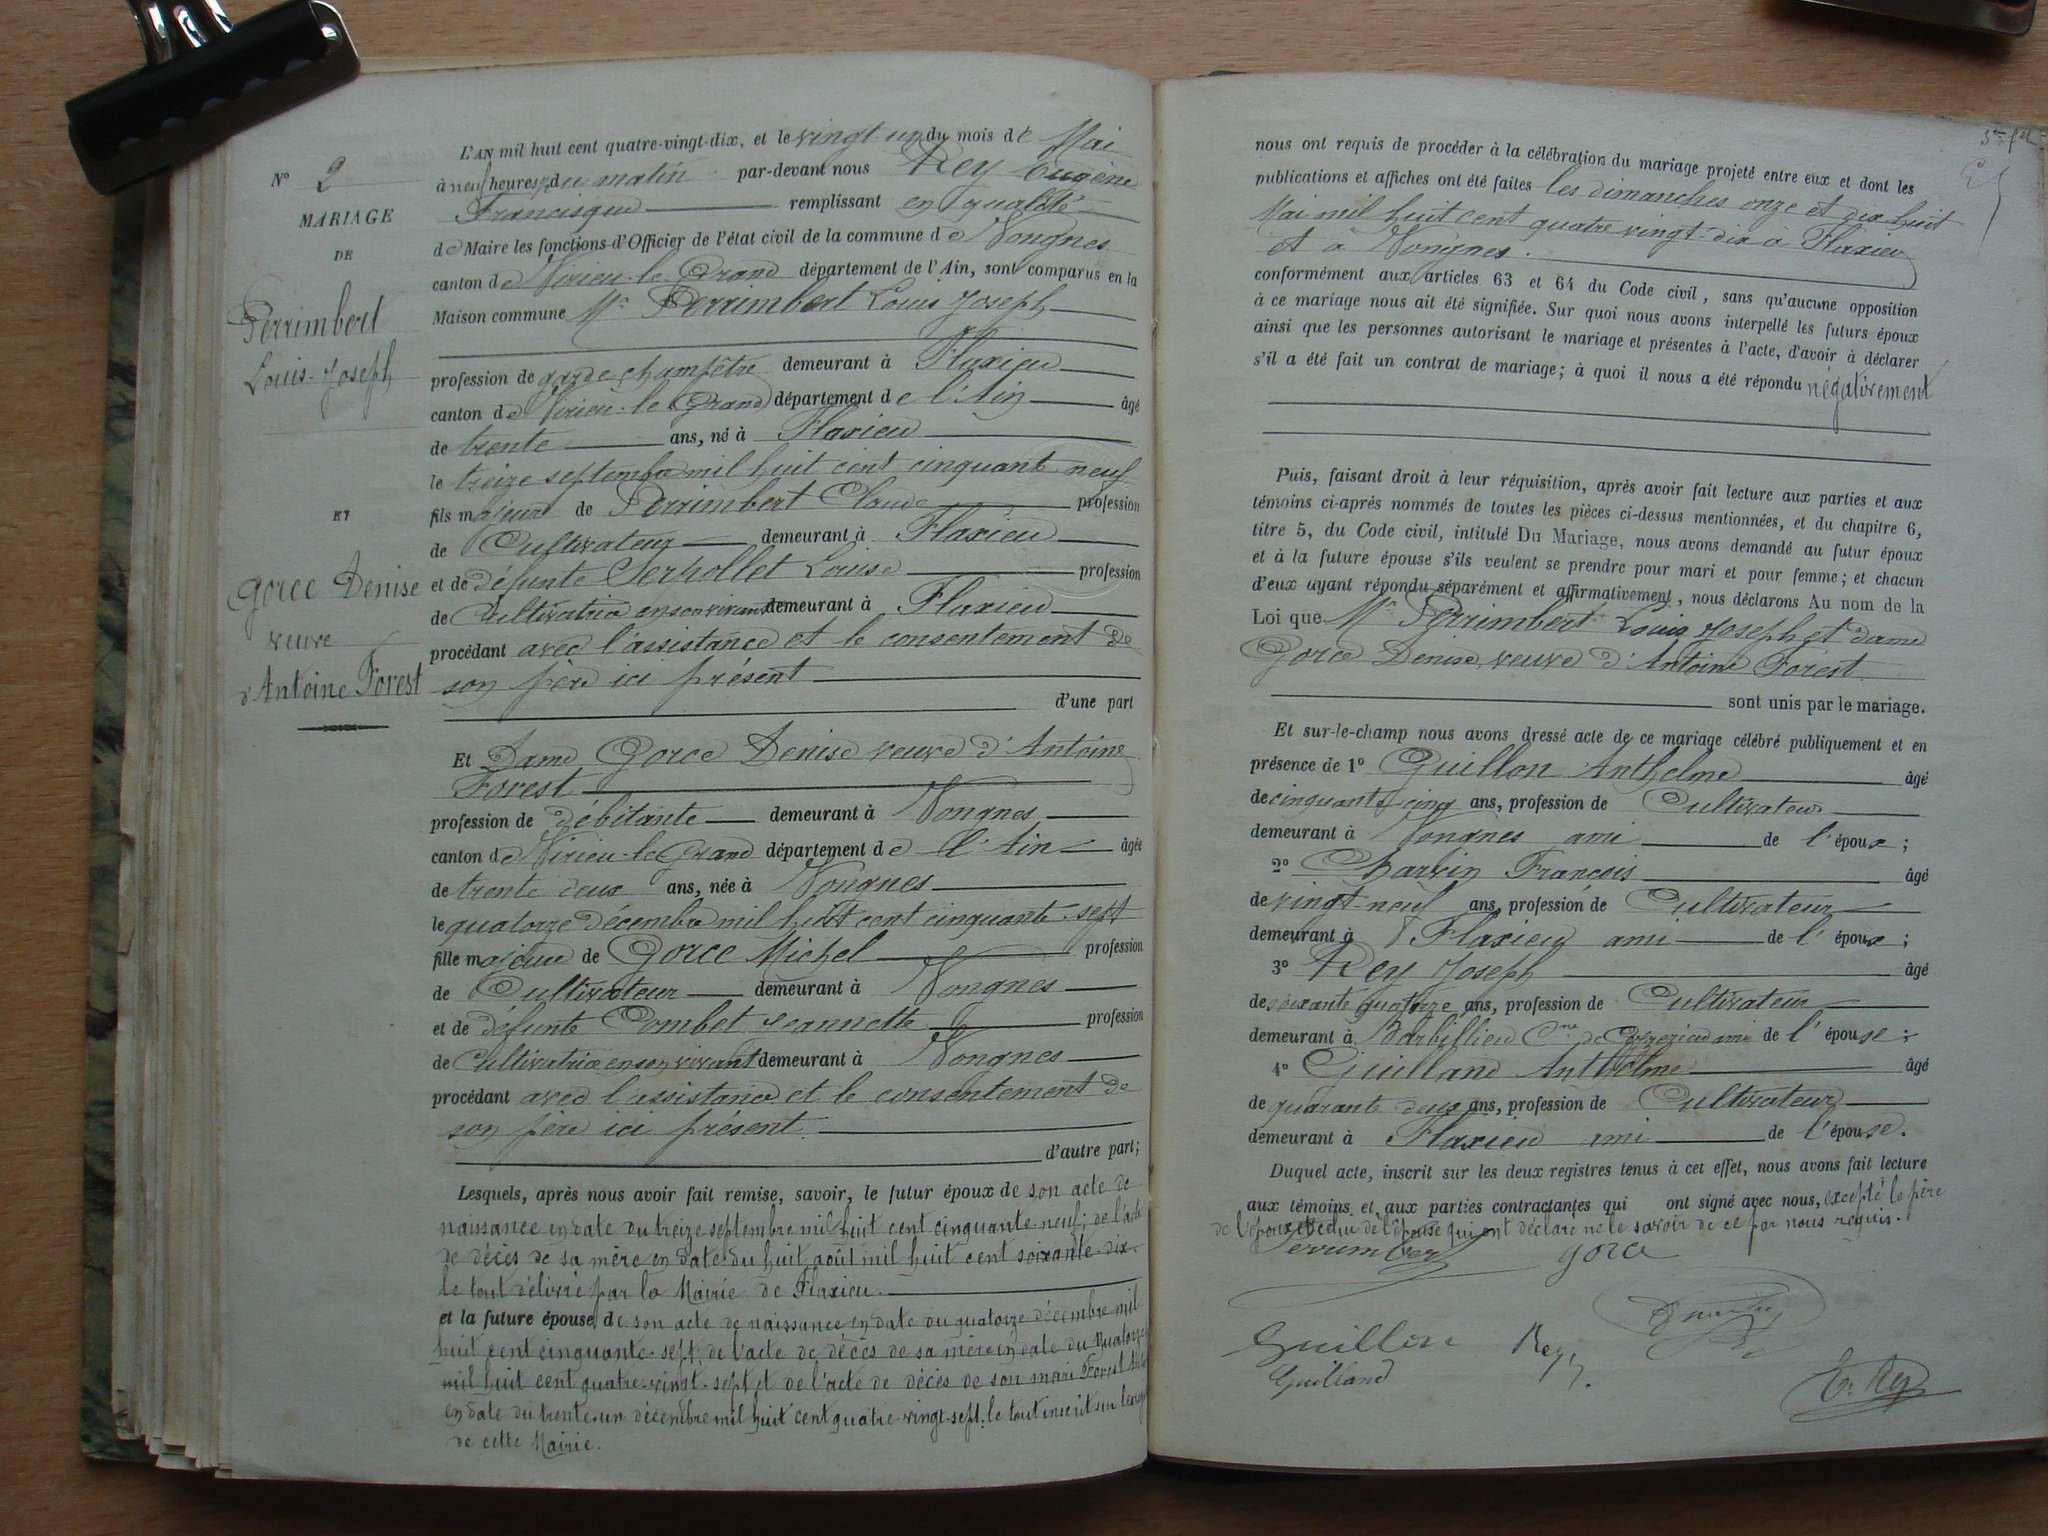 N° 2
MARIAGE
DE
Perrimbert
Louis-Joseph
ET
Gorce Denise
veuve
d'Antoine Forest
L'AN mil huit cent quatre-vingt-dix, et le vingt-un du mois de Mai
à neuf heures du matin par-devant nous Rey Eugène
Francisque remplissant en qualité
de Maire les fonctions d'Officier de l'état civil de la commune de Vongnes
canton de Virieu-le-Grand département de l'Ain, sont comparus en la
Maison commune Mr Perrimbert Louis Joseph
profession de garde champêtre demeurant à Flaxieu
canton de Virieu-le-Grand département de l'Ain âgé
de trente ans, né à Flaxieu
le treize septembre mil huit cent cinquante neuf
fils majeur de Perrimbert Claude profession
de Cultivateur demeurant à Flaxieu
et de défunte Serpollet Louise profession
de Cultivatrice en son vivant demeurant à Flaxieu
procédant avec l'assistance et le consentement de
son père ici présent
d'une part
Et Dame Gorce Denise veuve d'Antoine
Forest
profession de débitante demeurant à Vongnes
canton de Virieu-le-Grand département de l'Ain âgée
de trente deux ans, née à Vongnes
le quatorze décembre mil huit cent cinquante-sept
fille majeure de Gorce Michel profession
de Cultivateur demeurant à Vongnes
et de défunte Combet Jeannette profession
de Cultivatrice en son vivant demeurant à Vongnes
procédant avec l'assistance et le consentement de
son père ici présent
d'autre part;
Lesquels, après nous avoir fait remise, savoir, le futur époux de son acte de
naissance en date du treize septembre mil huit cent cinquante-neuf; de l'acte
de décès de sa mère en date du huit août mil huit cent soixante-dix.
le tout délivré par la Mairie de Flaxieu.
et la future épouse de son acte de naissance en date du quatorze décembre mil
huit cent cinquante-sept; de l'acte de décès de sa mère en date du quatorze
mil huit cent quatre-vingt-sept et de l'acte de décès de son mari Forest
en date du trente-un décembre mil huit cent quatre-vingt-sept; le tout inscrit sur
de cette Mairie.
nous ont requis de procéder à la célébration du mariage projeté entre eux et dont les
publications et affiches ont été faites les dimanches onze et dix huit
Mai mil huit cent quatre vingt-dix à Flaxieu
et à Vongnes.
conformément aux articles 63 et 64 du Code civil, sans qu'aucune opposition
à ce mariage nous ait été signifiée. Sur quoi nous avons interpellé les futurs époux
ainsi que les personnes autorisant le mariage et présentes à l'acte, d'avoir à déclarer
s'il a été fait un contrat de mariage; à quoi il nous a été répondu négativement
Puis, faisant droit à leur réquisition, après avoir fait lecture aux parties et aux
témoins ci-après nommés de toutes les pièces ci-dessus mentionnées, et du chapitre 6,
titre 5, du Code civil, intitulé Du Mariage, nous avons demandé au futur époux
et à la future épouse s'ils veulent se prendre pour mari et pour femme; et chacun
d'eux ayant répondu séparément et affirmativement, nous déclarons Au nom de la
Loi que Mr Perrimbert Louis Joseph et dame
Gorce Denise, veuve d'Antoine Forest
sont unis par le mariage.
Et sur-le-champ nous avons dressé acte de ce mariage célébré publiquement et en
présence de 1° Guillon Anthelme âgé
de cinquante-cinq ans, profession de Cultivateur
demeurant à Vongnes ami de l'époux;
2° Charvin François âgé
de vingt-neuf ans, profession de Cultivateur
demeurant à Flaxieu ami de l'époux;
3° Rey Joseph âgé
de soixante quatorze ans, profession de Cultivateur
demeurant à Barbillieu Cne de ami de l'épouse;
4° Guilland Anthelme âgé
de quarante deux ans, profession de Cultivateur
demeurant à Flaxieu ami de l'épouse.
Duquel acte, inscrit sur les deux registres tenus à cet effet, nous avons fait lecture
aux témoins et aux parties contractantes qui ont signé avec nous, excepté le père
de l'époux et celui de l'épouse qui ont déclaré ne le savoir de ce par nous requis.
Perrimbert Gorce
Guillon Rey
Guilland
E. Rey